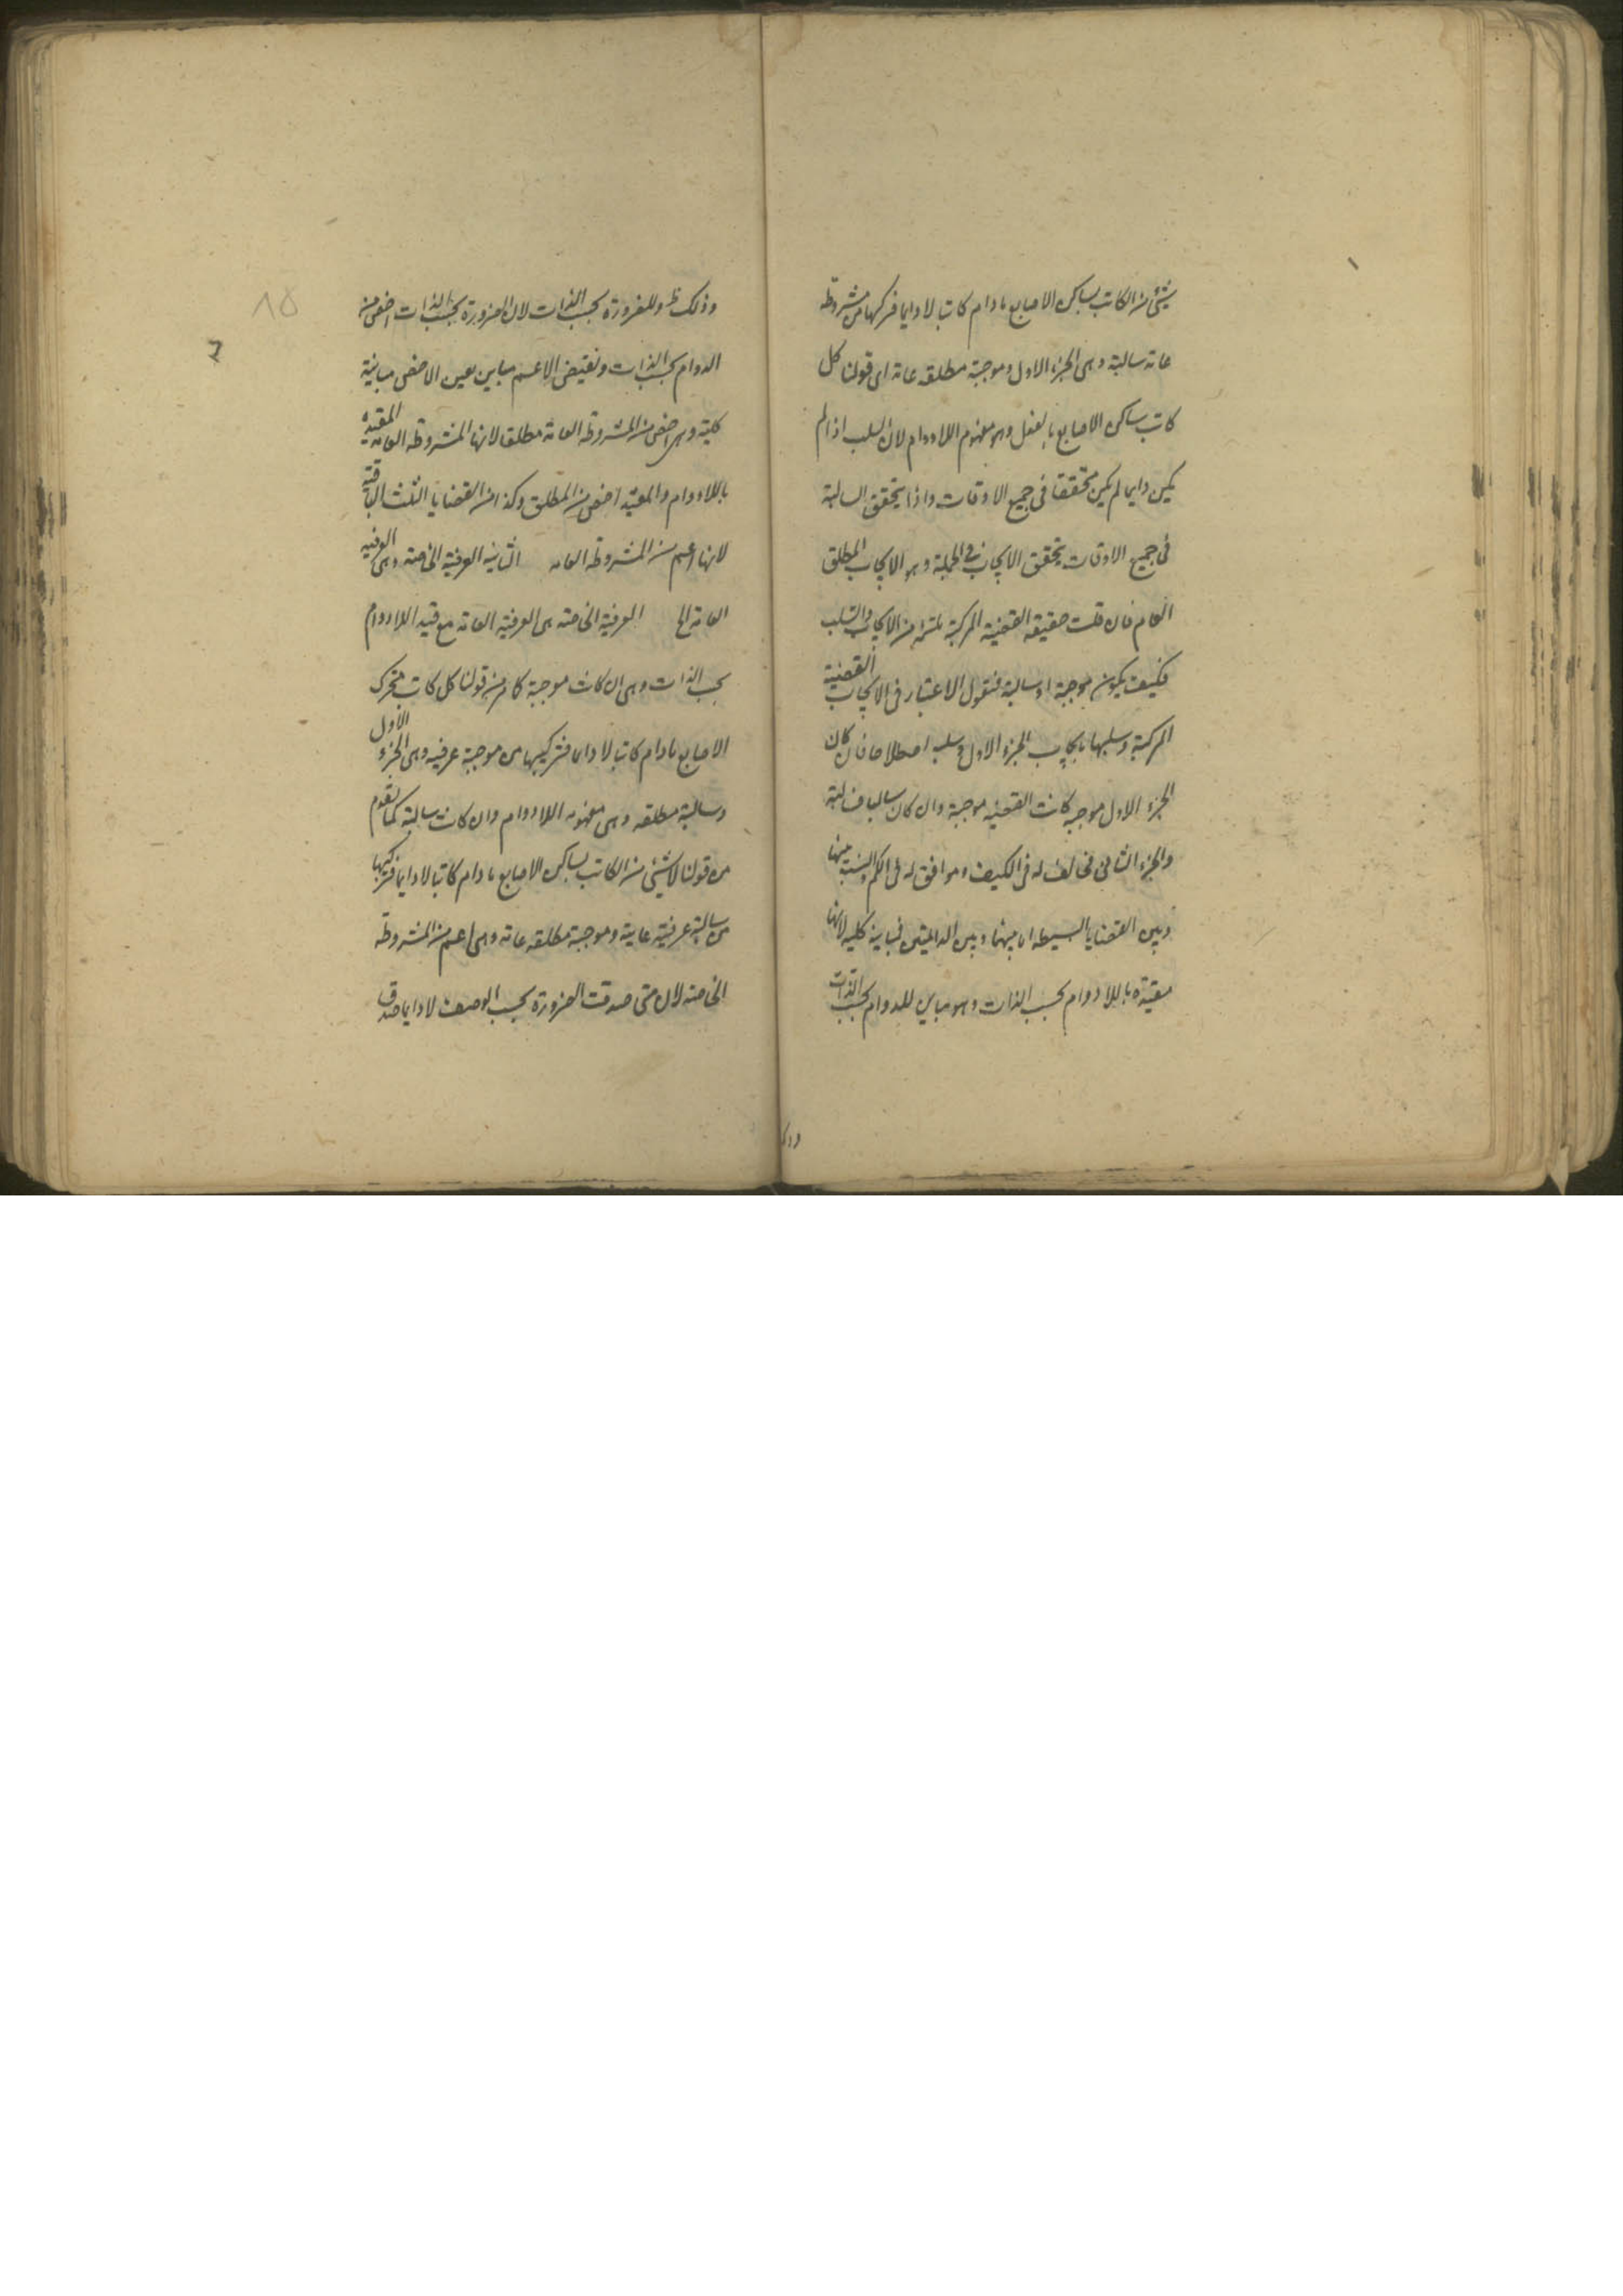 شيء من الكاتب بساكن الاصابع مادام كاتبا لا دايما فتركيبها من مشروطة
عامة سالبة وهى الجزء الاول وموجبة مطلقه عامة اى قولنا كل
كاتب ساكن الاصابع بالفعل وهو مفهوم اللادوام لان السلب اذا لم
يكن دايما لم يكن متحققا فى جميع الاوقات واذا لم يتحقق السالبة
فى جميع الاوقات يتحقق الايجاب فى الجملة وهو الايجاب المطلق
العام فان قلت حقيقه القضية المركبة ملتئمة من الايجاب والسلب
فكيف يكون موجبة او سالبة فنقول الاعتبار فى الايجاب القضية
المركبة وسلبها بايجاب الجزء الاول وسلبه اصطلاحا فان كان
الجزء الاول موجبه كانت القضيه موجبة وان كان سالبا فسالبة
والجزء الثانى مخالف له فى الكيف وموافق له فى الكم والنسبة بينها
وبين القضايا البسيطه اما بينها وبين الدائمتين فمباينة كليه لانها
مقيدة باللادوام بحسب الذات وهو مباين للدوام بحسب الذات
وذلك
وذلك ظ وللضرورة بحسب الذات لان الضرورة بحسب الذات اخص من
الدوام بحسب الذات ونقيض الاعم مباين لعين الاخص مباينة
كلية وهى اخص من المشروطة العامة مطلقا لانها المشروطه العامه المقيدة
باللادوام والمقيد اخص من المطلق وكذا من القضايا الثلث الباقية
لانها اعم من المشروطة العامه الثانيه العرفية الخاصة وهى العرفيه
العامة الخ العرفية الخاصة هى العرفية العامة مع قيد اللادوام
بحسب الذات وهى ان كانت موجبة كما مر من قولنا كل كاتب متحرك
الاصابع مادام كاتبا لا دايما فتركيبها من موجبة عرفيه وهى الجزء الاول
وسالبة مطلقه وهى مفهوم اللادوام وان كانت سالبة كما تقدم
من قولنا لا شيء من الكاتب بساكن الاصابع مادام كاتبا لا دايما فتركيبها
من سالبة عرفية عامة وموجبة مطلقه عامة وهى اعم من المشروطة
الخاصه لان متى صدقت الضرورة بحسب الوصف لا دايما صدق